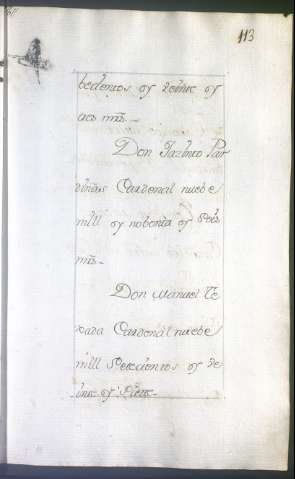 113
bcientos y veinte y
mrs.
Don Jazinto Par
Cardenal nuebe
mill y nobenta y seis
mrs.
Don Manuel Te
xada Cardenal nuebe
mill setecientos y ve
inte y siete.